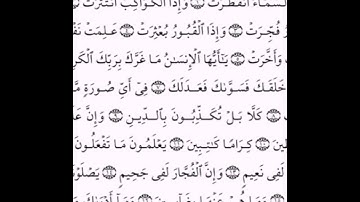 ٱلسَّمَآءُ ٱنفَطَرَتْ ۝١ وَإِذَا ٱلْكَوَاكِبُ ٱنتَثَرَتْ
فُجِّرَتْ ۝٣ وَإِذَا ٱلْقُبُورُ بُعْثِرَتْ ۝٤ عَلِمَتْ نَفْ
وَأَخَّرَتْ ۝٥ يَٰٓأَيُّهَا ٱلْإِنسَٰنُ مَا غَرَّكَ بِرَبِّكَ ٱلْكَرِ
خَلَقَكَ فَسَوَّىٰكَ فَعَدَلَكَ ۝٧ فِىٓ أَىِّ صُورَةٍ مَّا
۝٨ كَلَّا بَلْ تُكَذِّبُونَ بِٱلدِّينِ ۝٩ وَإِنَّ عَلَ
۝١٠ كِرَامًا كَٰتِبِينَ ۝١١ يَعْلَمُونَ مَا تَفْعَلُونَ
لَفِى نَعِيمٍ ۝١٣ وَإِنَّ ٱلْفُجَّارَ لَفِى جَحِيمٍ ۝١٤ يَصْلَوْنَ